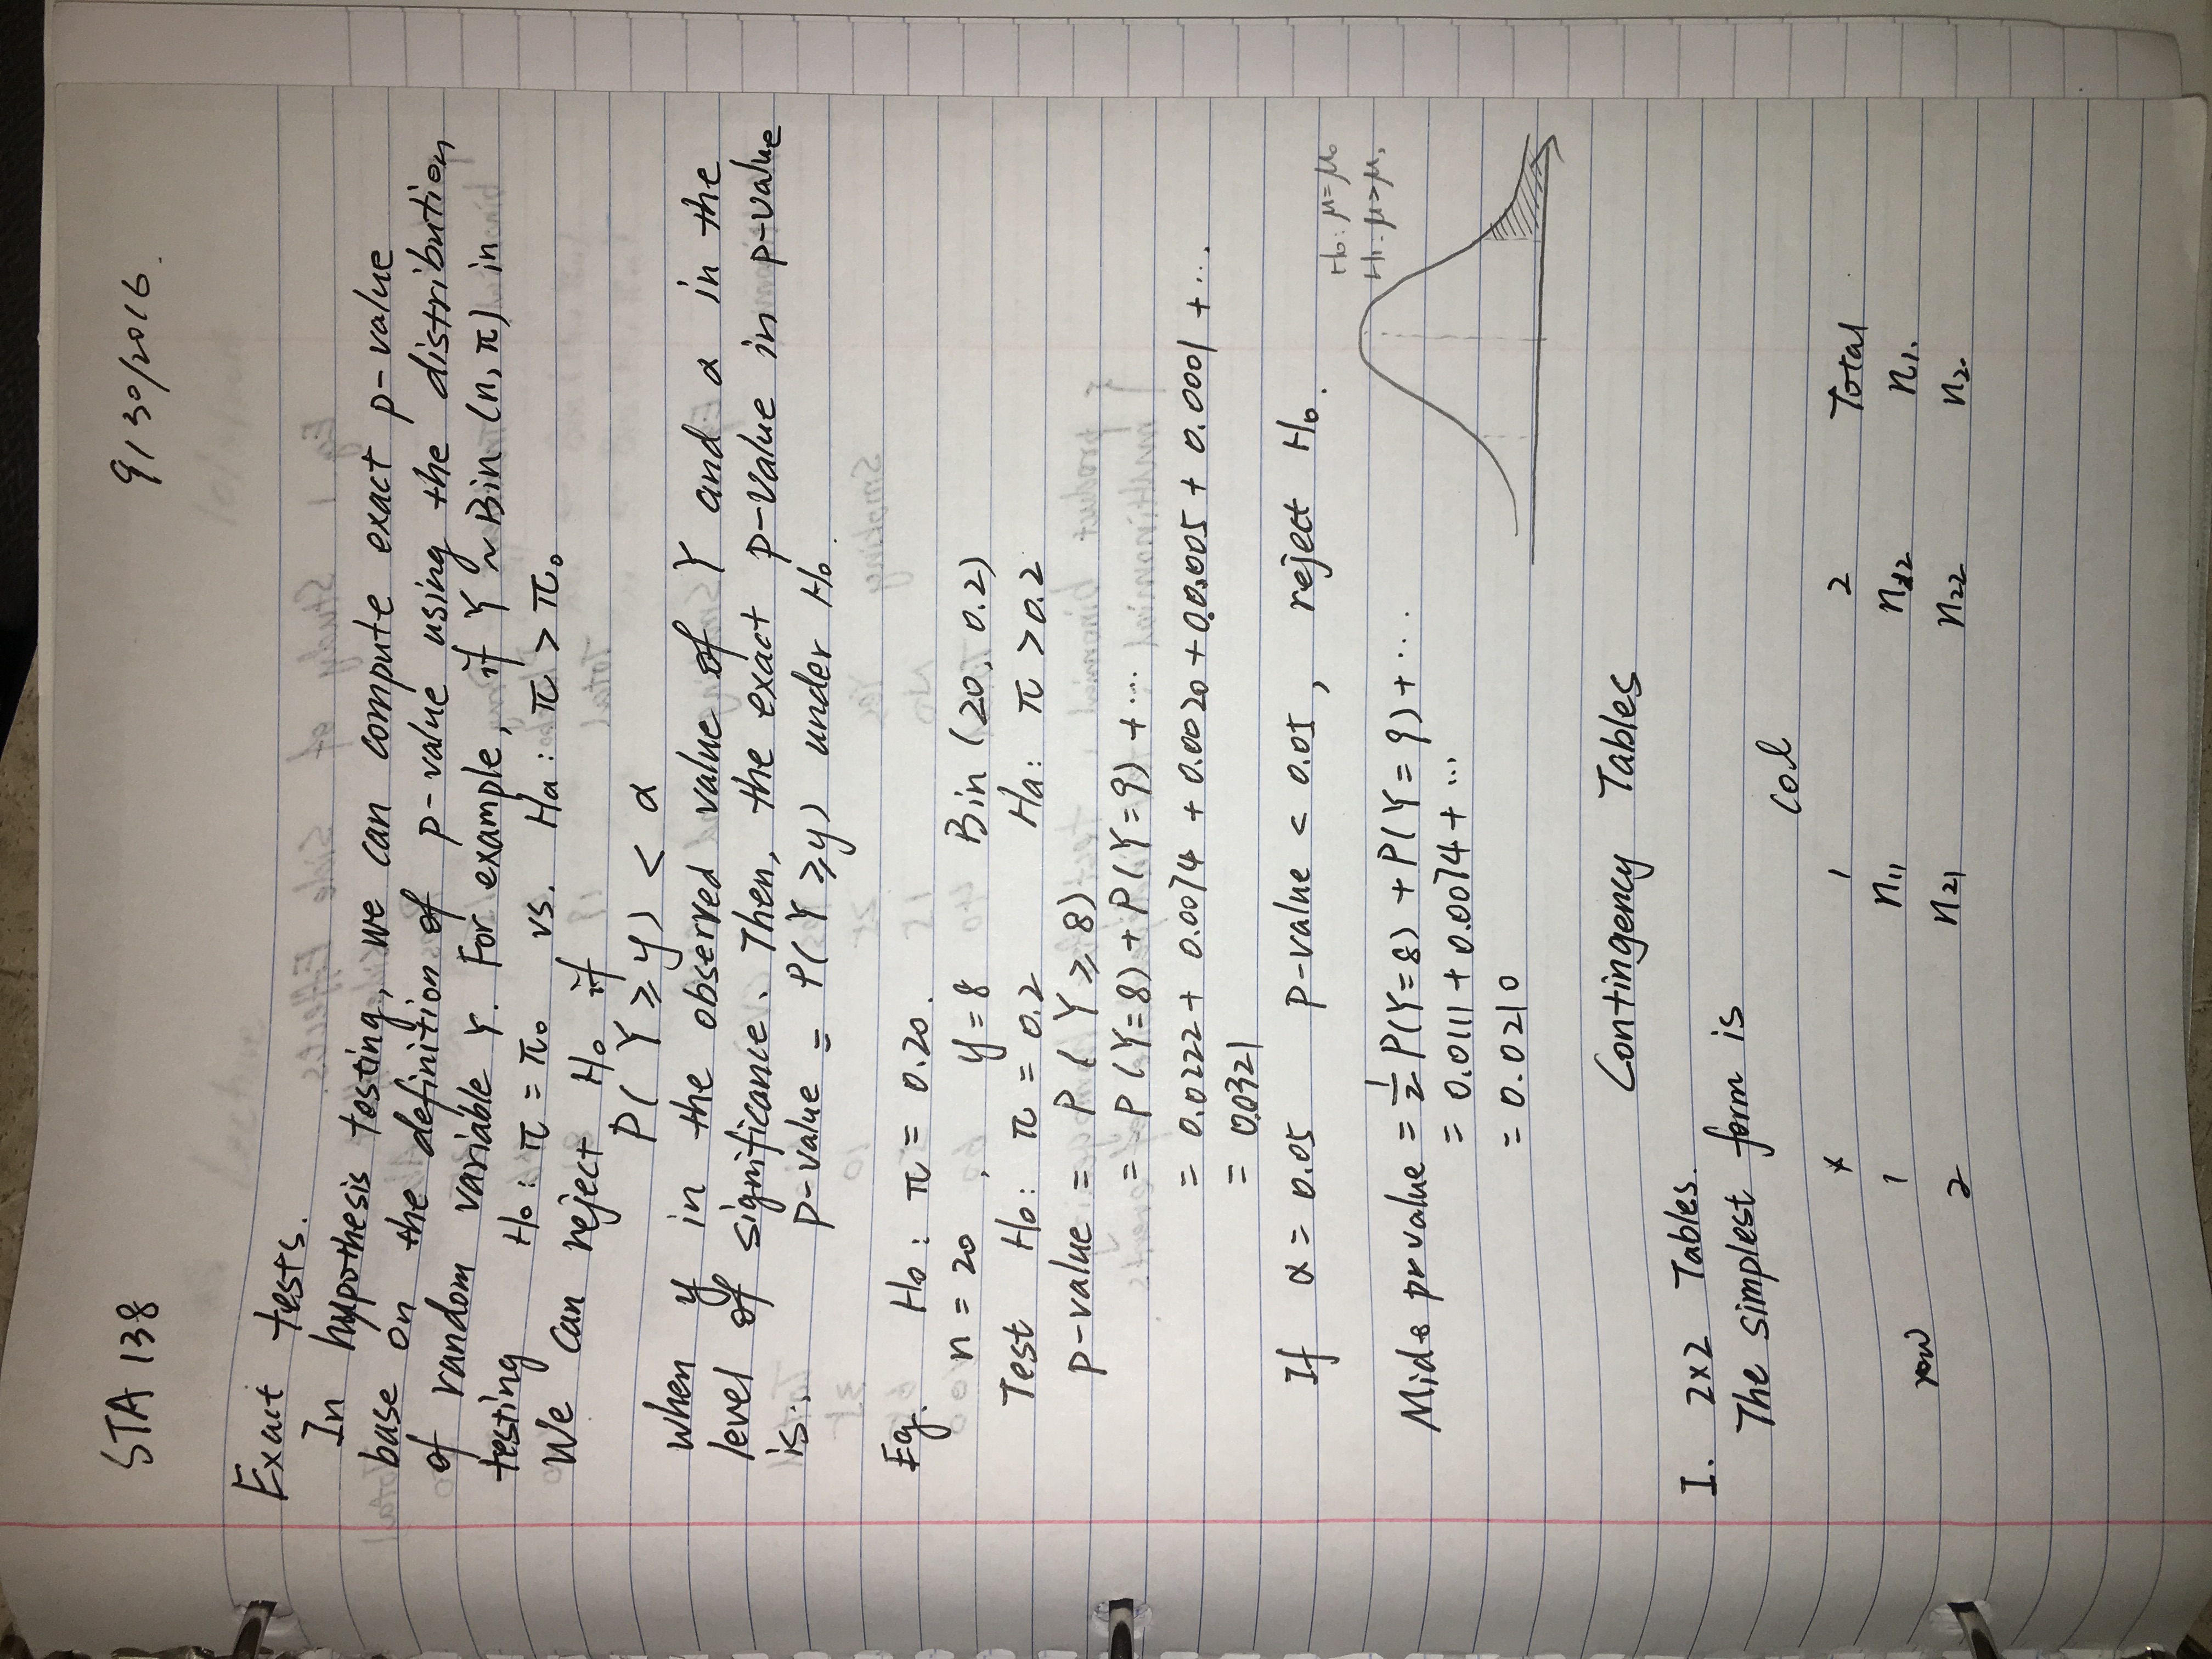 STA 138 9/30/2016.
Exact tests.
In hypothesis testing, we can compute exact p-value
base on the definition of p-value using the distribution
of random variable Y. For example, if Y ~ Bin (n, π) in
testing H₀: π = π₀ vs. Ha: π > π₀
We can reject H₀ if
P( Y ≥ y) < α
when y in the observed value of Y and α in the
level of significance. Then, the exact p-value in p-value
is:
p-value = P( Y ≥ y) under H₀.
Eg. H₀: π = 0.20.
n = 20, y = 8 Bin (20, 0.2)
Test H₀: π = 0.2 Ha: π > 0.2
p-value = P ( Y ≥ 8)
= P (Y=8) + P(Y=9) + ...
= 0.0222 + 0.0074 + 0.0020 + 0.0005 + 0.0001 + ...
= 0.0321
If α = 0.05 p-value < 0.05, reject H₀.
H₀: μ=μ₀
H₁: μ>μ₀
Mid p-value = ½ P(Y=8) + P(Y=9) + ...
= 0.0111 + 0.0074 + ...
= 0.0210
Contingency Tables
I. 2x2 Tables.
The simplest form is
col
x 1 2 Total
row 1 n₁₁ n₁₂ n₁.
2 n₂₁ n₂₂ n₂.